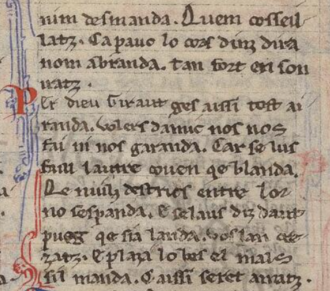 nim desmanda. Quem cosseil
latz. Ca pauc lo cors dinz dira
nom abranda. tan fort en son
uatz.
Per dieu Giraut ges aissi tost a
randa. volers damic nos nos
fai ni nos garanda. Car se lus
faill lautre couen qe blanda.
Qe nuills destrics entre lor
no sespanda. E selaus diz daut
pueg qe sia landa. vos lan cre
zatz. E plaza lo bes el mals
sil manda. Caissi seretz amatz.